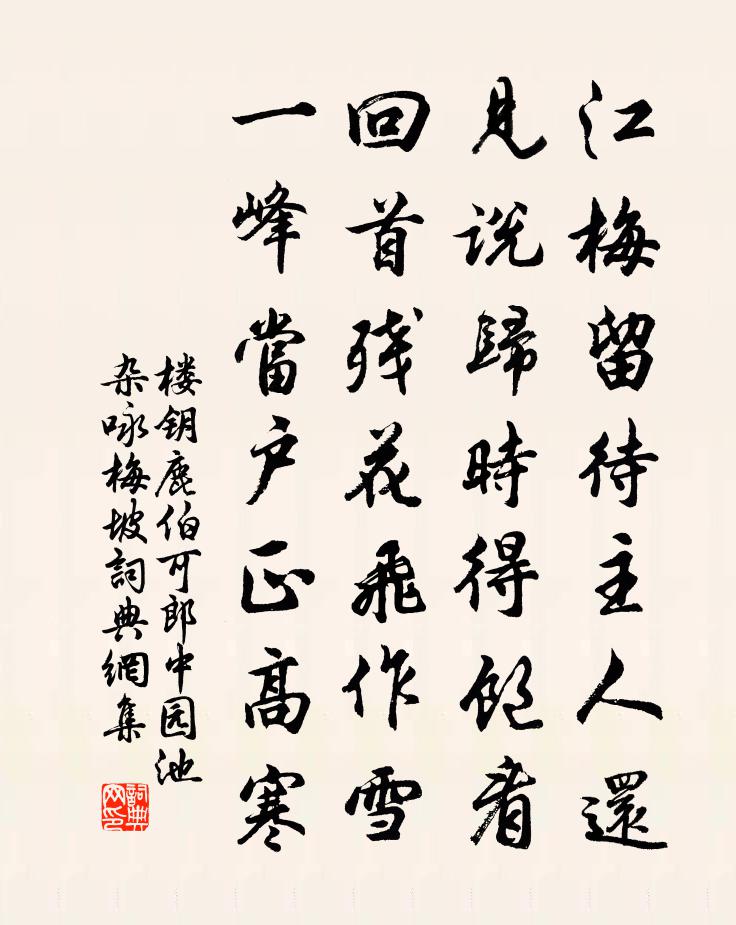 江梅留待主人還
見説歸時得飽看
回首残花飛作雪
一峰當户正高寒
楼钥鹿伯可郎中园池
杂咏梅坡詞典網集
詞典网印